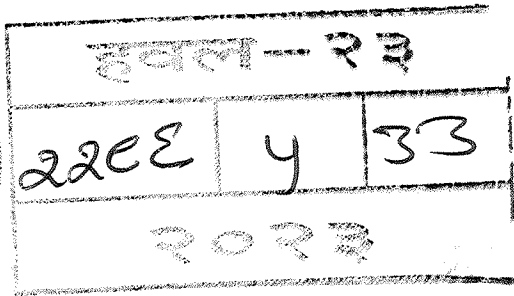 हवल-२३
२२९६ ५ ३३
२०२३